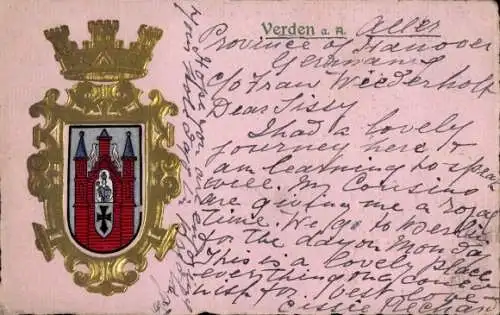 Verden a. A. Aller
Province of Hanover
Germany
c/o Frau Wiederholt
Dear Sissy
I had a lovely
journey here &
am learning to speak
well. My Cousins
are giving me a royal
time. We go to Berlin
for the day on Monday
This is a lovely place
everything one could
wish for. Best love
Cissie
I hope you